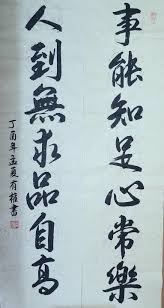 事能知足心常樂
人到無求品自高
丁酉年孟夏有權書